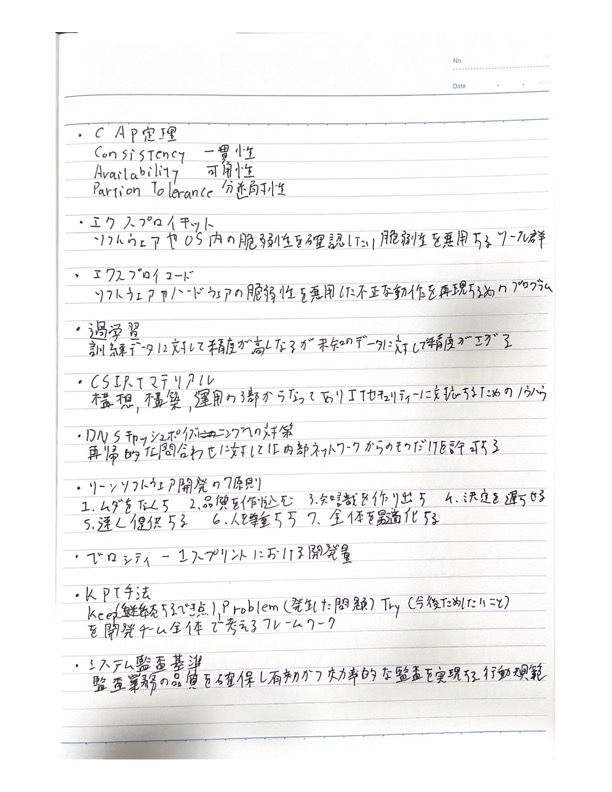 No.
Date
・CAP定理
Consistency 一貫性
Availability 可用性
Partion Tolerance 分断耐性
・エクスプロイキット
ソフトウェアやOS内の脆弱性を確認したり脆弱性を悪用するツール群
・エクスプロイコード
ソフトウェアやハードウェアの脆弱性を悪用した不正な動作を再現するためのプログラム
・過学習
訓練データに対して精度が高くなるが未知のデータに対して精度が下がる
・CSIRTマテリアル
構想,構築,運用の3部からなっておりITセキュリティーに対応するためのノウハウ
・DNSキャッシュポイズニングへの対策
再帰的な問合わせに対しては内部ネットワークからのものだけを許可する
・リーンソフトウェア開発の7原則
1.ムダをなくす 2.品質を作り込む 3.知識を作り出す 4.決定を遅らせる
5.速く提供する 6.人を尊重する 7.全体を最適化する
・ベロシティ ー 1スプリントにおける開発量
・KPT手法
Keep(継続するべき点),Problem(発生した問題)Try(今後ためしたいこと)
を開発チーム全体で考えるフレームワーク
・システム監査基準
監査業務の品質を確保し有効かつ効率的な監査を実現する行動規範